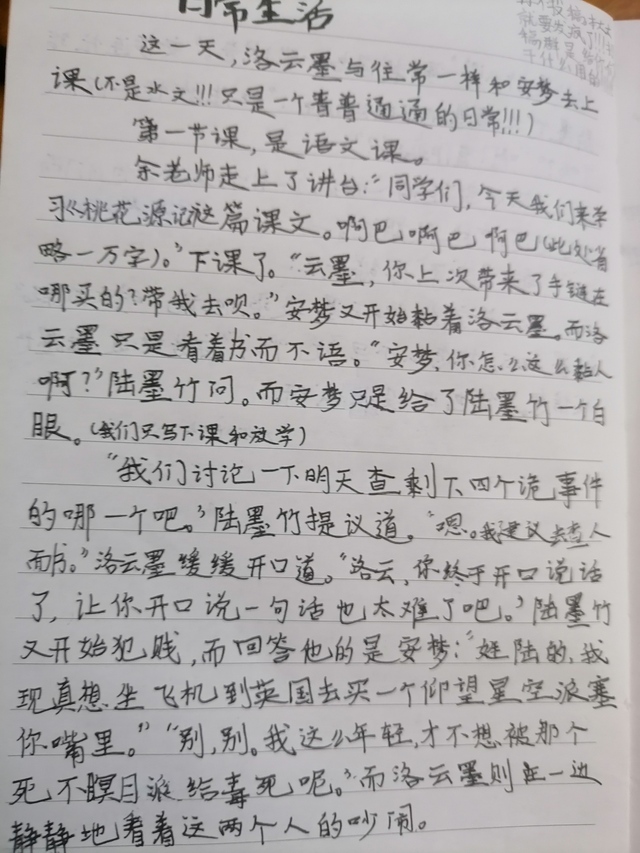 日常生活
这一天，洛云墨与往常一样和安梦去上
课(不是水文!!!只是一个普普通通的日常!!!)
第一节课，是语文课。
余老师走上了讲台：“同学们，今天我们来学
习《桃花源记》这篇课文。啊巴啊巴啊巴(此处省
略一万字)。”下课了。“云墨，你上次带来了手链在
哪买的？带我去呗。”安梦又开始黏着洛云墨。而洛
云墨只是看着书而不语。“安梦，你怎么这么黏人
啊？”陆墨竹问。而安梦只是给了陆墨竹一个白
眼。(我们只写下课和放学)
“我们讨论一下明天查剩下四个诡事件
的哪一个吧。”陆墨竹提议道。“嗯。我建议去查人
面书。”洛云墨缓缓开口道。“洛云，你终于开口说话
了，让你开口说一句话也太难了吧。”陆墨竹
又开始犯贱，而回答他的是安梦：“姓陆的，我
现真想坐飞机到英国去买一个仰望星空派塞
你嘴里。”“别，别。我这么年轻，才不想被那个
死不瞑目派给毒死呢。”而洛云墨则在一边
静静地看着这两个人的吵闹。